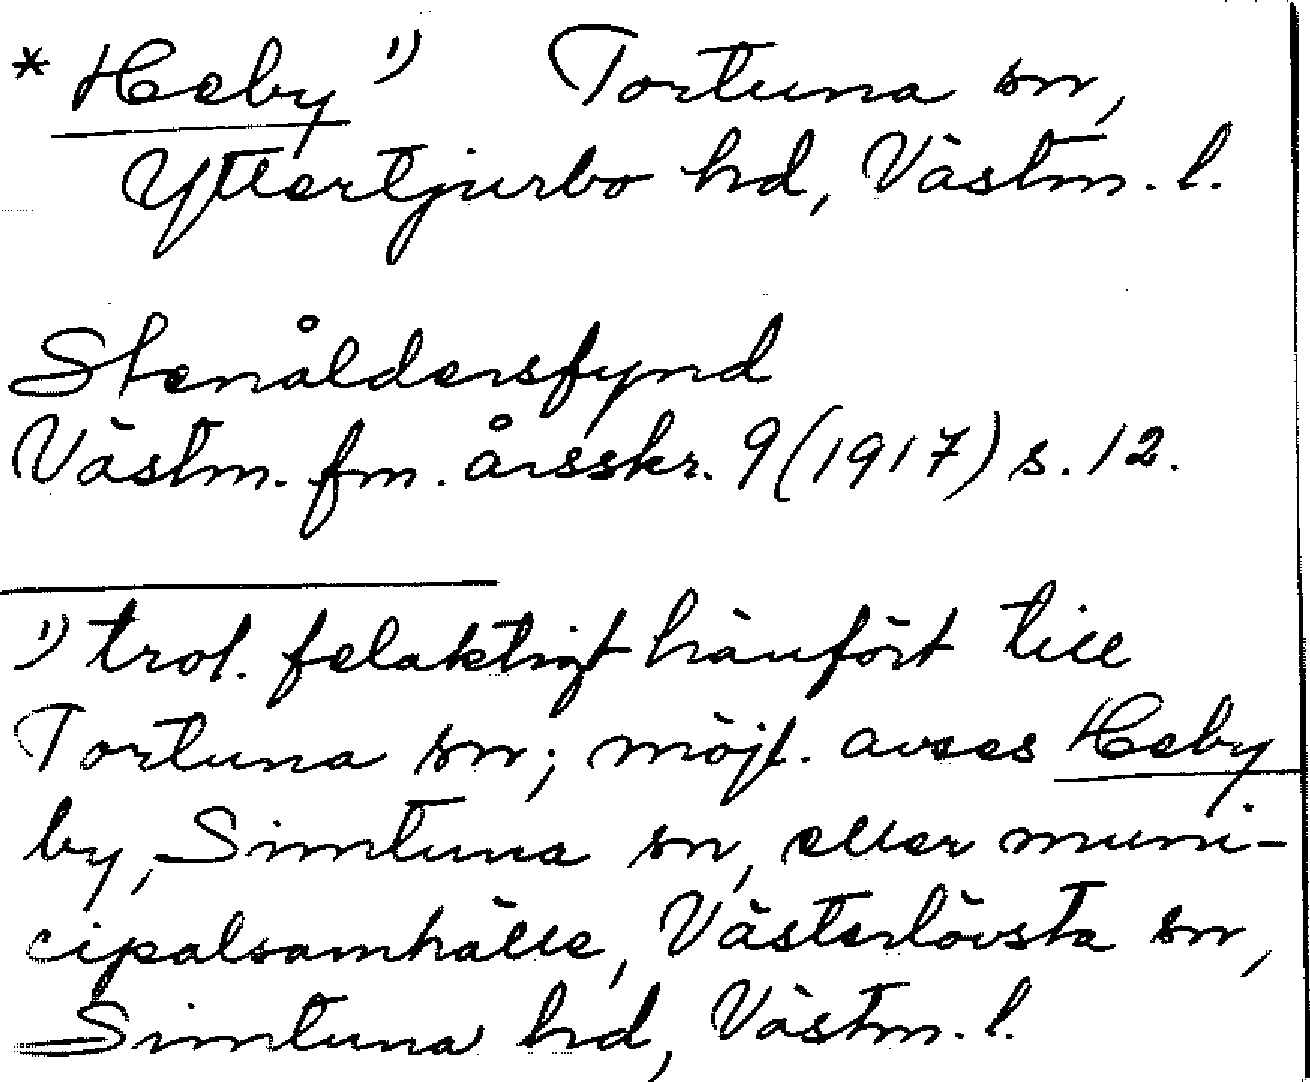 * Heby 1) Tortuna sn,
Yttertjurbo hd, Västm. l.
Stenåldersfynd
Västm. fm. årsskr. 9 (1917) s. 12.
1) trol. felaktigt hänfört till
Tortuna sn; möjl. avses Heby
by, Simtuna sn, eller muni-
cipalsamhälle, Västerlövsta sn,
Simtuna hd, Västm. l.